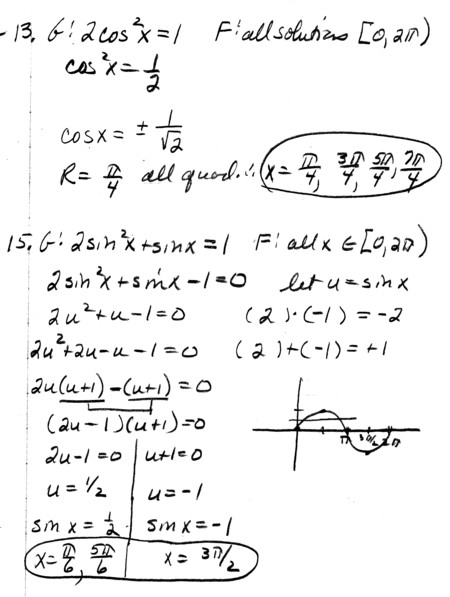 13. G: 2cos²x = 1  F: all solutions [0, 2π)
cos²x = 1/2
cos x = ± 1/√2
R = π/4 all quad. ∴ x = π/4, 3π/4, 5π/4, 7π/4
15. G: 2sin²x + sinx = 1  F: all x ∈ [0, 2π)
2sin²x + sinx - 1 = 0  let u = sinx
2u² + u - 1 = 0  (2)·(-1) = -2
2u² + 2u - u - 1 = 0  (2) + (-1) = +1
2u(u+1) - (u+1) = 0
(2u - 1)(u+1) = 0
π 3π/2 2π
2u - 1 = 0  u+1 = 0
u = 1/2  u = -1
sin x = 1/2  sin x = -1
x = π/6, 5π/6  x = 3π/2